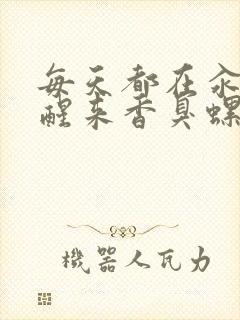 每天都在汆
醒来香臭螺
機器人瓦力